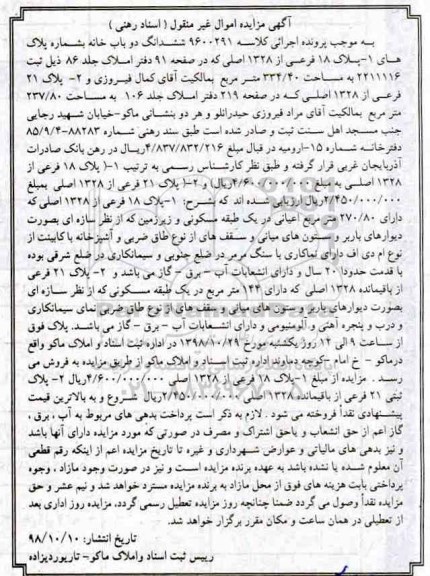 آگهی مزایده اموال غیر منقول ( اسناد رهنی )
به موجب پرونده اجرائی کلاسه ۹۶۰۰۲۹۱ ششدانگ دو باب خانه بشماره پلاک
های ۱-پلاک ۱۸ فرعی از ۱۳۲۸ اصلی که در صفحه ۹۱ دفتر املاک جلد ۸۶ ذیل ثبت
۲۲۱۱۱۱۶ به مساحت ۳۳۴/۴۰ متر مربع بمالکیت آقای کمال فیروزی و ۲- پلاک ۲۱
فرعی از ۱۳۲۸ اصلی که در صفحه ۲۱۹ دفتر املاک جلد ۱۰۶ به مساحت ۲۳۷/۸۰
متر مربع بمالکیت آقای مراد فیروزی حیدرانلو و هر دو بنشانی ماکو-خیابان شهید رجایی
جنب مسجد اهل سنت ثبت و صادر شده است طبق سند رهنی شماره ۸۸۲۸۳-۸۵/۹/۴
دفترخانه شماره ۱۵-ارومیه در قبال مبلغ ۴/۸۳۷/۸۳۲/۲۱۶ریال در رهن بانک صادرات
آذربایجان غربی قرار گرفته و طبق نظر کارشناس رسمی به ترتیب ۱-( پلاک ۱۸ فرعی از
۱۳۲۸ اصلی به مبلغ ۴/۶۰۰/۰۰۰/۰۰۰ریال) و ۲-( پلاک ۲۱ فرعی از ۱۳۲۸ اصلی بمبلغ
۲/۴۵۰/۰۰۰/۰۰۰ریال)ارزیابی شده اند که بشرح: ۱-پلاک ۱۸ فرعی از ۱۳۲۸ اصلی که
دارای ۲۷۰/۸۰ متر مربع اعیانی در یک طبقه مسکونی و زیرزمین که از نظر سازه ای بصورت
دیوارهای باربر و ستون های میانی و سقف های از نوع طاق ضربی و آشپزخانه با کابینت از
نوع ام دی اف دارای نماکاری با سنگ مرمر در ضلع جنوبی و سیمانکاری در ضلع شرقی بوده
با قدمت حدودا ۲۰ سال و دارای انشعابات آب - برق - گاز می باشد و ۲- پلاک ۲۱ فرعی
از باقیمانده ۱۳۲۸ اصلی که دارای ۱۴۴ متر مربع در یک طبقه مسکونی که از نظر سازه ای
بصورت دیوارهای باربر و ستون های میانی و سقف های از نوع طاق ضربی نمای سیمانکاری
و درب و پنجره آهنی و آلومنیومی و دارای انشعابات آب - برق - گاز می باشد. پلاک فوق
از ساعت ۹ الی ۱۲ روز یکشنبه مورخ ۱۳۹۸/۱۰/۲۹ در اداره ثبت اسناد و املاک ماکو واقع
درماکو - خ امام -کوچه دماوند اداره ثبت اسناد و املاک ماکو از طریق مزایده به فروش می
رسد . مزایده از مبلغ ۱-پلاک ۱۸ فرعی از ۱۳۲۸ اصلی ۴/۶۰۰/۰۰۰/۰۰۰ریال ۲- پلاک
ثبتی ۲۱ فرعی از باقیمانده ۱۳۲۸ اصلی ۲/۴۵۰/۰۰۰/۰۰۰ریال شروع و به بالاترین قیمت
پیشنهادی نقداً فروخته می شود . لازم به ذکر است پرداخت بدهی های مربوط به آب ، برق ،
گاز اعم از حق انشعاب و یاحق اشتراک و مصرف در صورتی که مورد مزایده دارای آنها باشد
و نیز بدهی های مالیاتی و عوارض شهرداری و غیره تا تاریخ مزایده اعم از اینکه رقم قطعی
آن معلوم شده یا نشده باشد به عهده برنده مزایده است و نیز در صورت وجود مازاد ، وجوه
پرداختی بابت هزینه های فوق از محل مازاد به برنده مزایده مسترد خواهد شد و نیم عشر و حق
مزایده نقداً وصول می گردد ضمنا چنانچه روز مزایده تعطیل رسمی گردد، مزایده روز اداری بعد
از تعطیلی در همان ساعت و مکان مقرر برگزار خواهد شد.
تاریخ انتشار: ۹۸/۱۰/۱۰
رییس ثبت اسناد واملاک ماکو- تاریوردیزاده